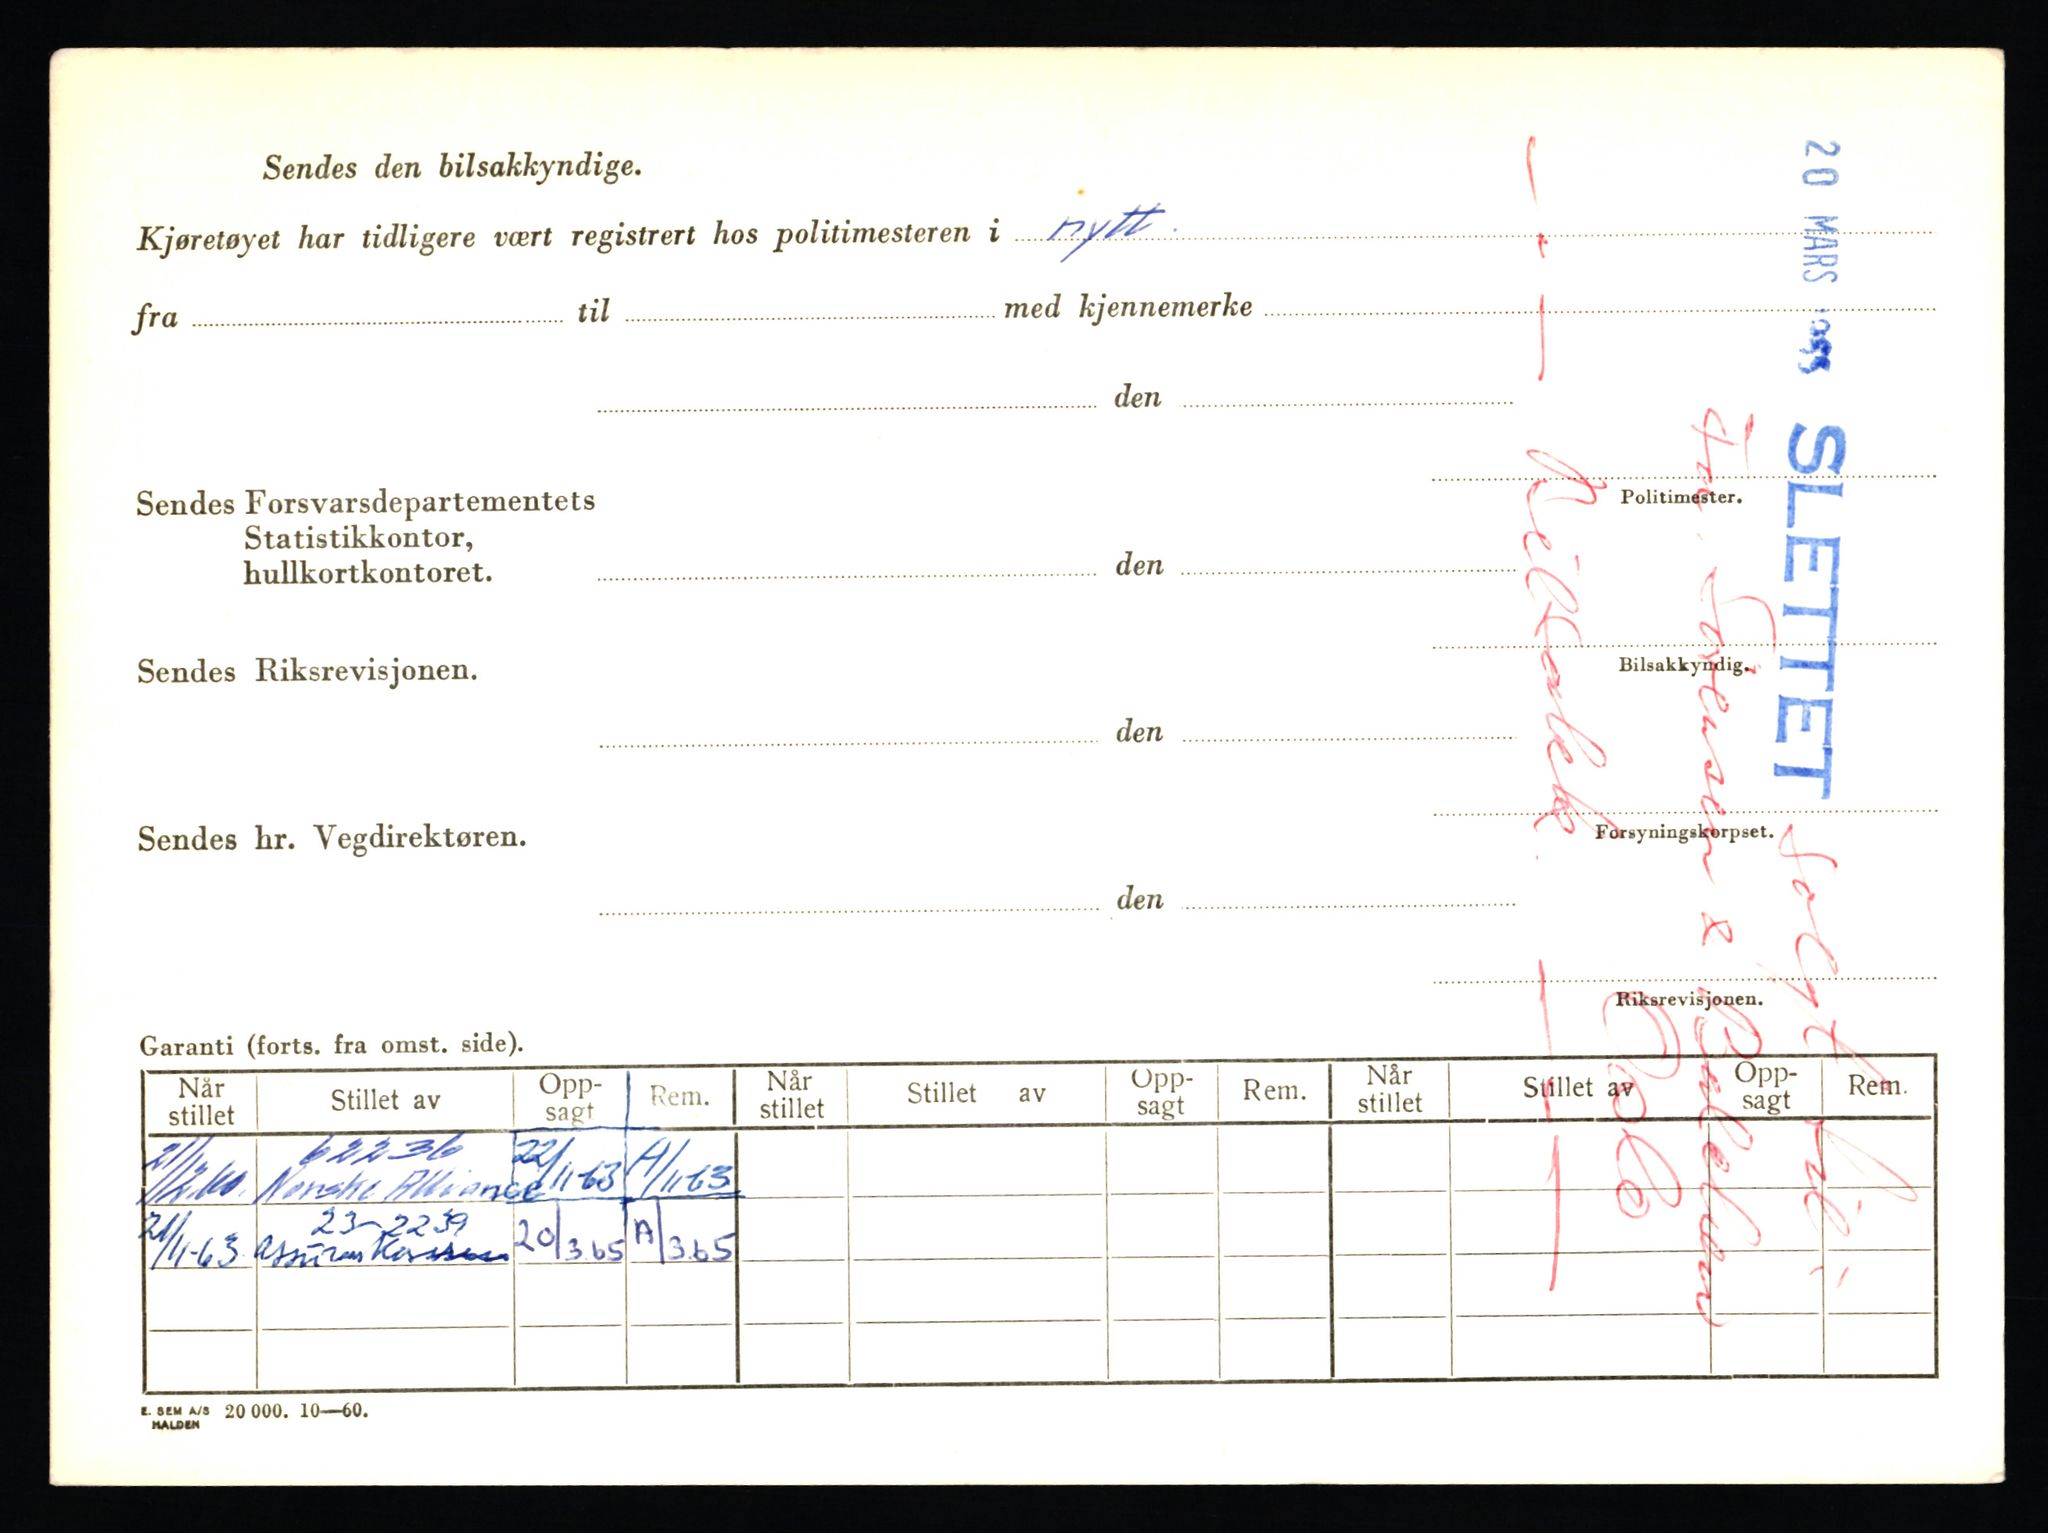 Sendes den bilsakkyndige.
Kjøretøyet har tidligere vært registrert hos politimesteren i nytt.
fra til med kjennemerke
den
Politimester.
Sendes Forsvarsdepartementets
Statistikkontor,
hullkortkontoret.
den
Bilsakkyndig.
Sendes Riksrevisjonen.
den
Forsyningskorpset.
Sendes hr. Vegdirektøren.
den
Riksrevisjonen.
20 MARS
SLETTET
solgt til:
Sörensen & Balchen
Oslo
Garanti (forts. fra omst. side).
Når stillet Stillet av Opp-sagt Rem. Når stillet Stillet av Opp-sagt Rem. Når stillet Stillet av Opp-sagt Rem.
62236
Norske Alliance 22/11-63 A/11-63
23-2239
21/11-63 20/3.65 A/3.65
E. SEM A/S
HALDEN
20 000. 10—60.